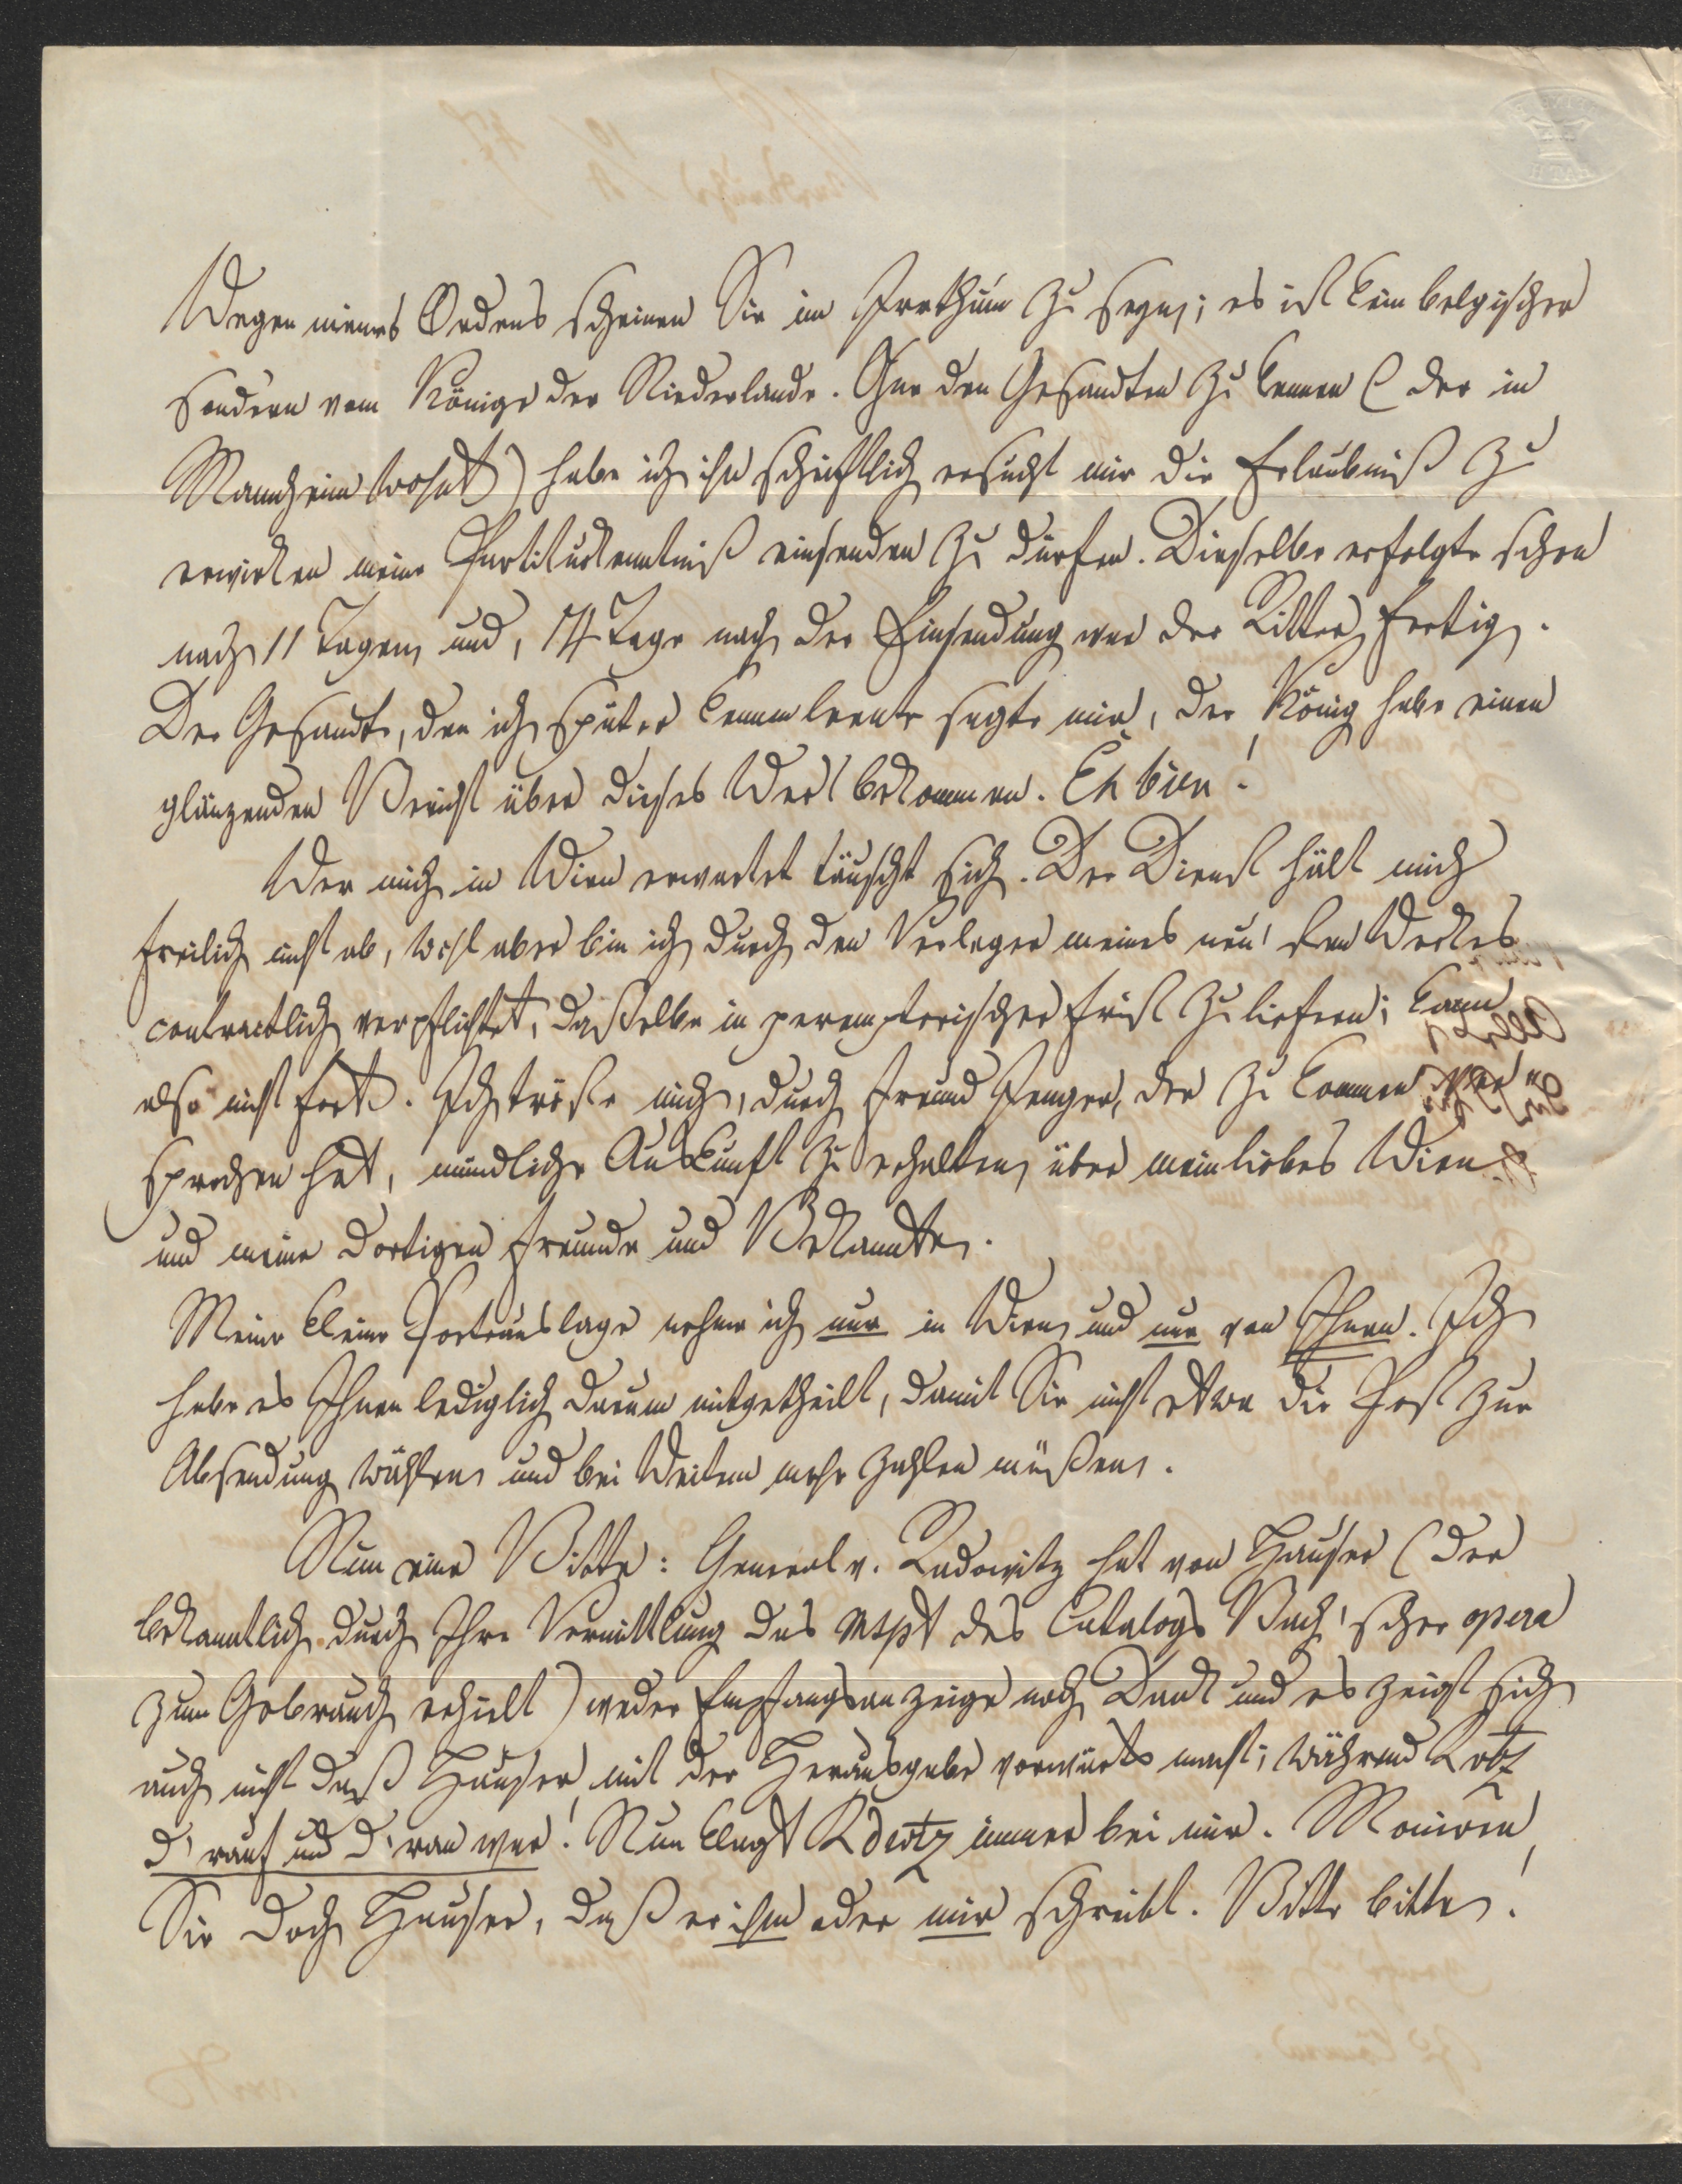 Wegen meines Ordens scheinen Sie im Irrthum zu seyn; es ist kein belgischer
sondern vom Könige der Niederlande. Ohne den Gesandten zu kennen (der in
Mannheim wohnt) habe ich ihn schriftlich ersucht mir die Erlaubniß zu
erwirken meine Partiturkenntniß einsenden zu dürfen. Dieselbe erfolgte schon
nach 11 Tagen und, 14 Tage nach der Einsendung war der Ritter fertig.
Der Gesandte, den ich später kennen lernte sagte mir, der König habe einen
glänzenden Bericht über dieses Werk bekommen. Eh bien!
Wer mich in Wien erwartet täuscht sich. Der Dienst hält mich
freilich nicht ab, wohl aber bin ich durch den Verleger meines neu'sten Werkes
contractlich verpflichtet, daßelbe in peremptorischer Frist zu liefern; kann
also nicht fort. Ich tröste mich, durch Freund Fenger, der zu kommen ver
sprochen hat, mündliche Auskunft zu erhalten über mein liebes Wien
und meine dortigen Freunde und Bekannten.
Meine kleine Portoauslage nehme ich nur in Wien und nur von Ihnen. Ich
habe es Ihnen lediglich darum mitgetheilt, damit Sie nicht etwa die Post zur
Absendung wählen und bei Weitem mehr zahlen müßen.
Nun eine Bitte: General v. Radowitz hat von Hauser (der
bekanntlich durch Ihre Vermittlung das Mspt des Catalogs Bach'scher opera
zum Gebrauch erhielt) weder Empfangsanzeige noch Dank und es zeigt sich
auch nicht daß Hauser mit der Herausgabe vorwärts macht; während Rdtz
d'rauf und d'ran war! Nun klagt Rdwtz immer bei mir. Moniren
Sie doch Hauser, daß er ihm oder mir schreibt. Bitte bitte!